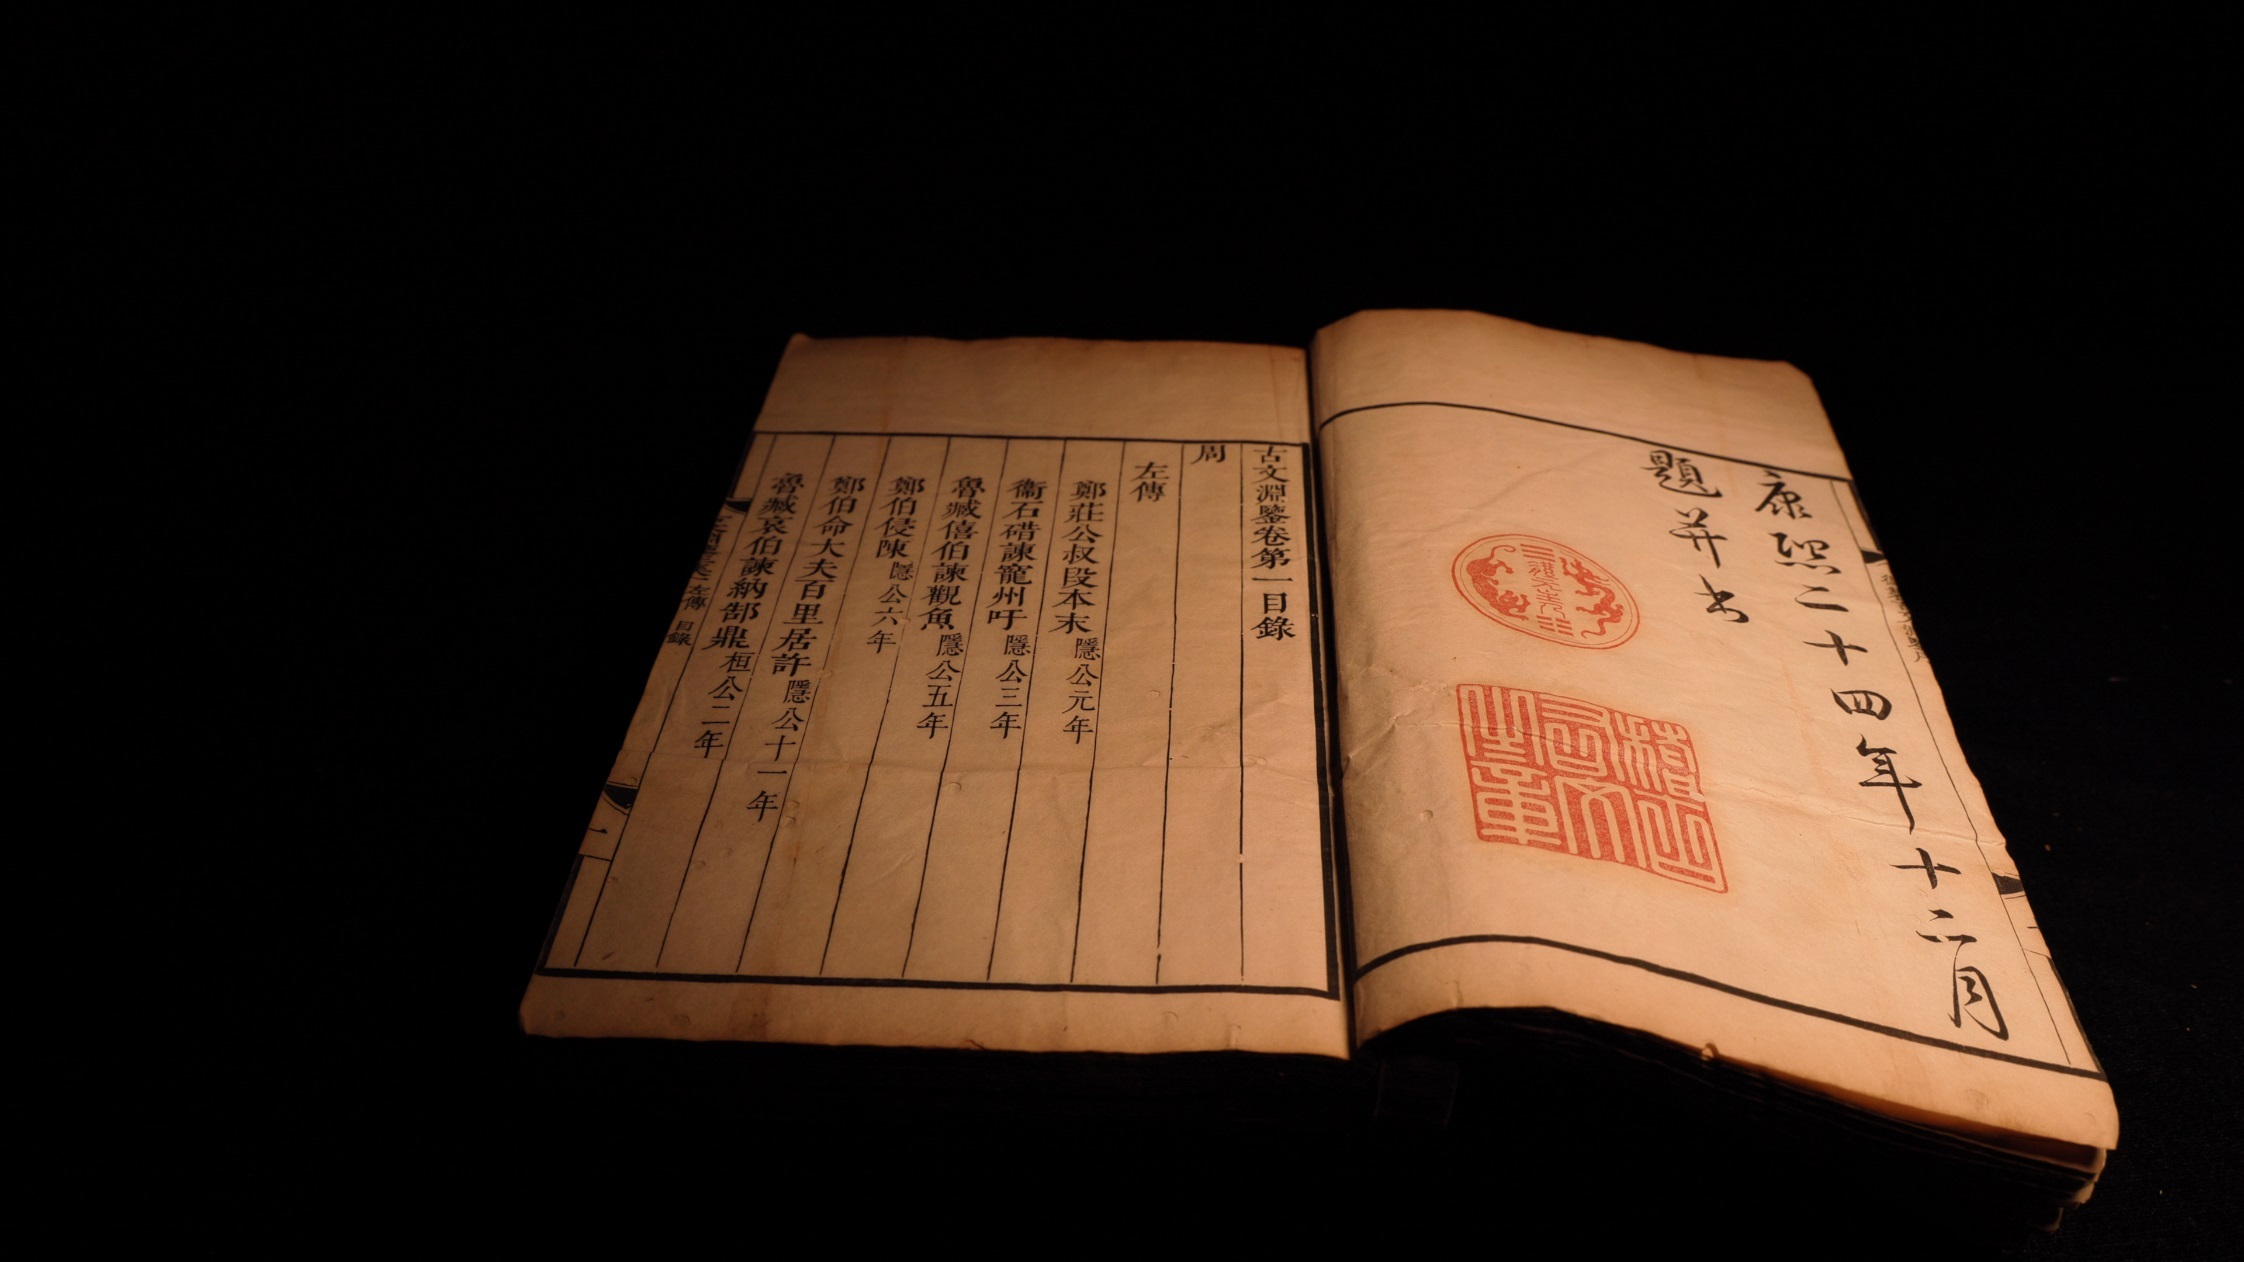 康熙二十四年十二月
題并书
稽古右文之章
古文淵鑒卷第一目錄
周
左傳
鄭莊公叔段本末 隱公元年
衞石碏諫寵州吁 隱公三年
魯臧僖伯諫觀魚 隱公五年
鄭伯侵陳 隱公六年
鄭伯命大夫百里居許 隱公十一年
魯臧哀伯諫納郜鼎 桓公二年
左傳 目錄
一